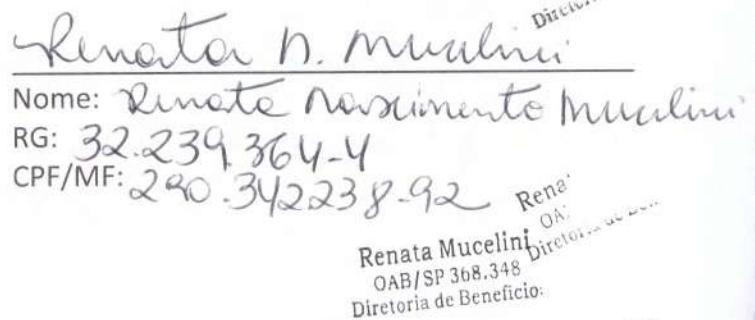 Diretor
Renata N. Mucelini
Nome: Renata Nascimento Mucelini
RG: 32.239.364-4
CPF/MF: 290.342238-92
Rena
OA
Diretor
Renata Mucelini
OAB/SP 368.348
Diretoria de Beneficio: